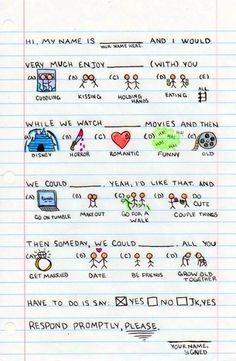 HI, MY NAME IS ________ AND I WOULD
YOUR NAME HERE.
VERY MUCH ENJOY ______ (WITH) YOU
(A) (B) (C) (D) (E)
CUDDLING KISSING HOLDING HANDS EATING ALL
WHILE WE WATCH _____ MOVIES AND THEN
(A) (B) (C) (D) (E)
DISNEY HORROR ROMANTIC FUNNY OLD
WE COULD ______. YEAH, I'D LIKE THAT. AND
(A) (B) (C) (D) DO CUTE
GO ON TUMBLR MAKEOUT GO FOR A WALK COUPLE THINGS
THEN SOMEDAY, WE COULD ______. ALL YOU
(A) (B) (C) (D)
GET MARRIED DATE BE FRIENDS GROW OLD TOGETHER
HAVE TO DO IS SAY: YES NO JK, YES
RESPOND PROMPTLY, PLEASE.
YOUR NAME,
SIGNED